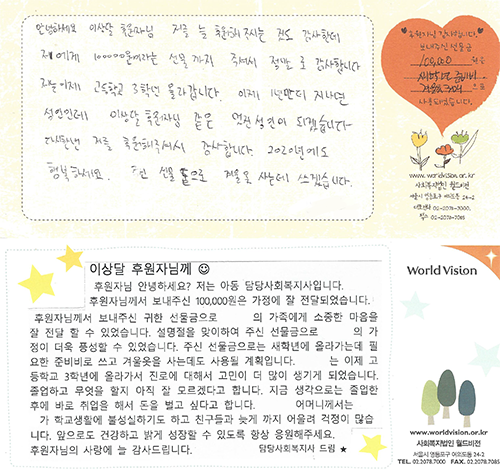 안녕하세요 이상달 후원자님 저를 늘 후원해주시는 것도 감사한데
저에게 100000원이라는 선물까지 주셔서 정말로 감사합니다
저는 이제 고등학교 3학년 올라갑니다. 이제 1년만 더 지나면
성인인데 이상달 후원자님 같은 멋진 성인이 되겠습니다
다시한번 저를 후원해주셔서 감사합니다 2020년에도
행복하세요. 주신 선물 돈으로 겨울옷 사는데 쓰겠습니다.
후원자님 감사합니다.
보내주신 선물금
100,000 원은
새학년 준비
겨울옷구매 으로
사용되었습니다.
www.worldvision.or.kr
사회복지법인 월드비전
서울시 영등포구 여의도동 24-2
대표전화 02-2078-7000
팩스 02-2078-7085
이상달 후원자님께 ☺
후원자님 안녕하세요? 저는 아동 담당사회복지사입니다.
후원자님께서 보내주신 100,000원은 가정에 잘 전달되었습니다.
후원자님께서 보내주신 귀한 선물금으로 의 가족에게 소중한 마음을
잘 전달 할 수 있었습니다. 설명절을 맞이하여 주신 선물금으로 의 가
정이 더욱 풍성할 수 있었습니다. 주신 선물금으로는 새학년에 올라가는데 필
요한 준비비로 쓰고 겨울옷을 사는데도 사용될 계획입니다. 는 이제 고
등학교 3학년에 올라가서 진로에 대해서 고민이 더 많이 생기게 되었습니다.
졸업하고 무엇을 할지 아직 잘 모르겠다고 합니다. 지금 생각으로는 졸업한
후에 바로 취업을 해서 돈을 벌고 싶다고 합니다. 어머니께서는
가 학교생활에 불성실하기도 하고 친구들과 늦게 까지 어울려 걱정이 많습
니다. 앞으로도 건강하고 밝게 성장할 수 있도록 항상 응원해주세요.
후원자님의 사랑에 늘 감사드립니다. 담당사회복지사 드림 ★
World Vision
www.worldvision.or.kr
사회복지법인 월드비전
서울시 영등포구 여의도동 24-2
TEL. 02.2078.7000 FAX. 02.2078.7085